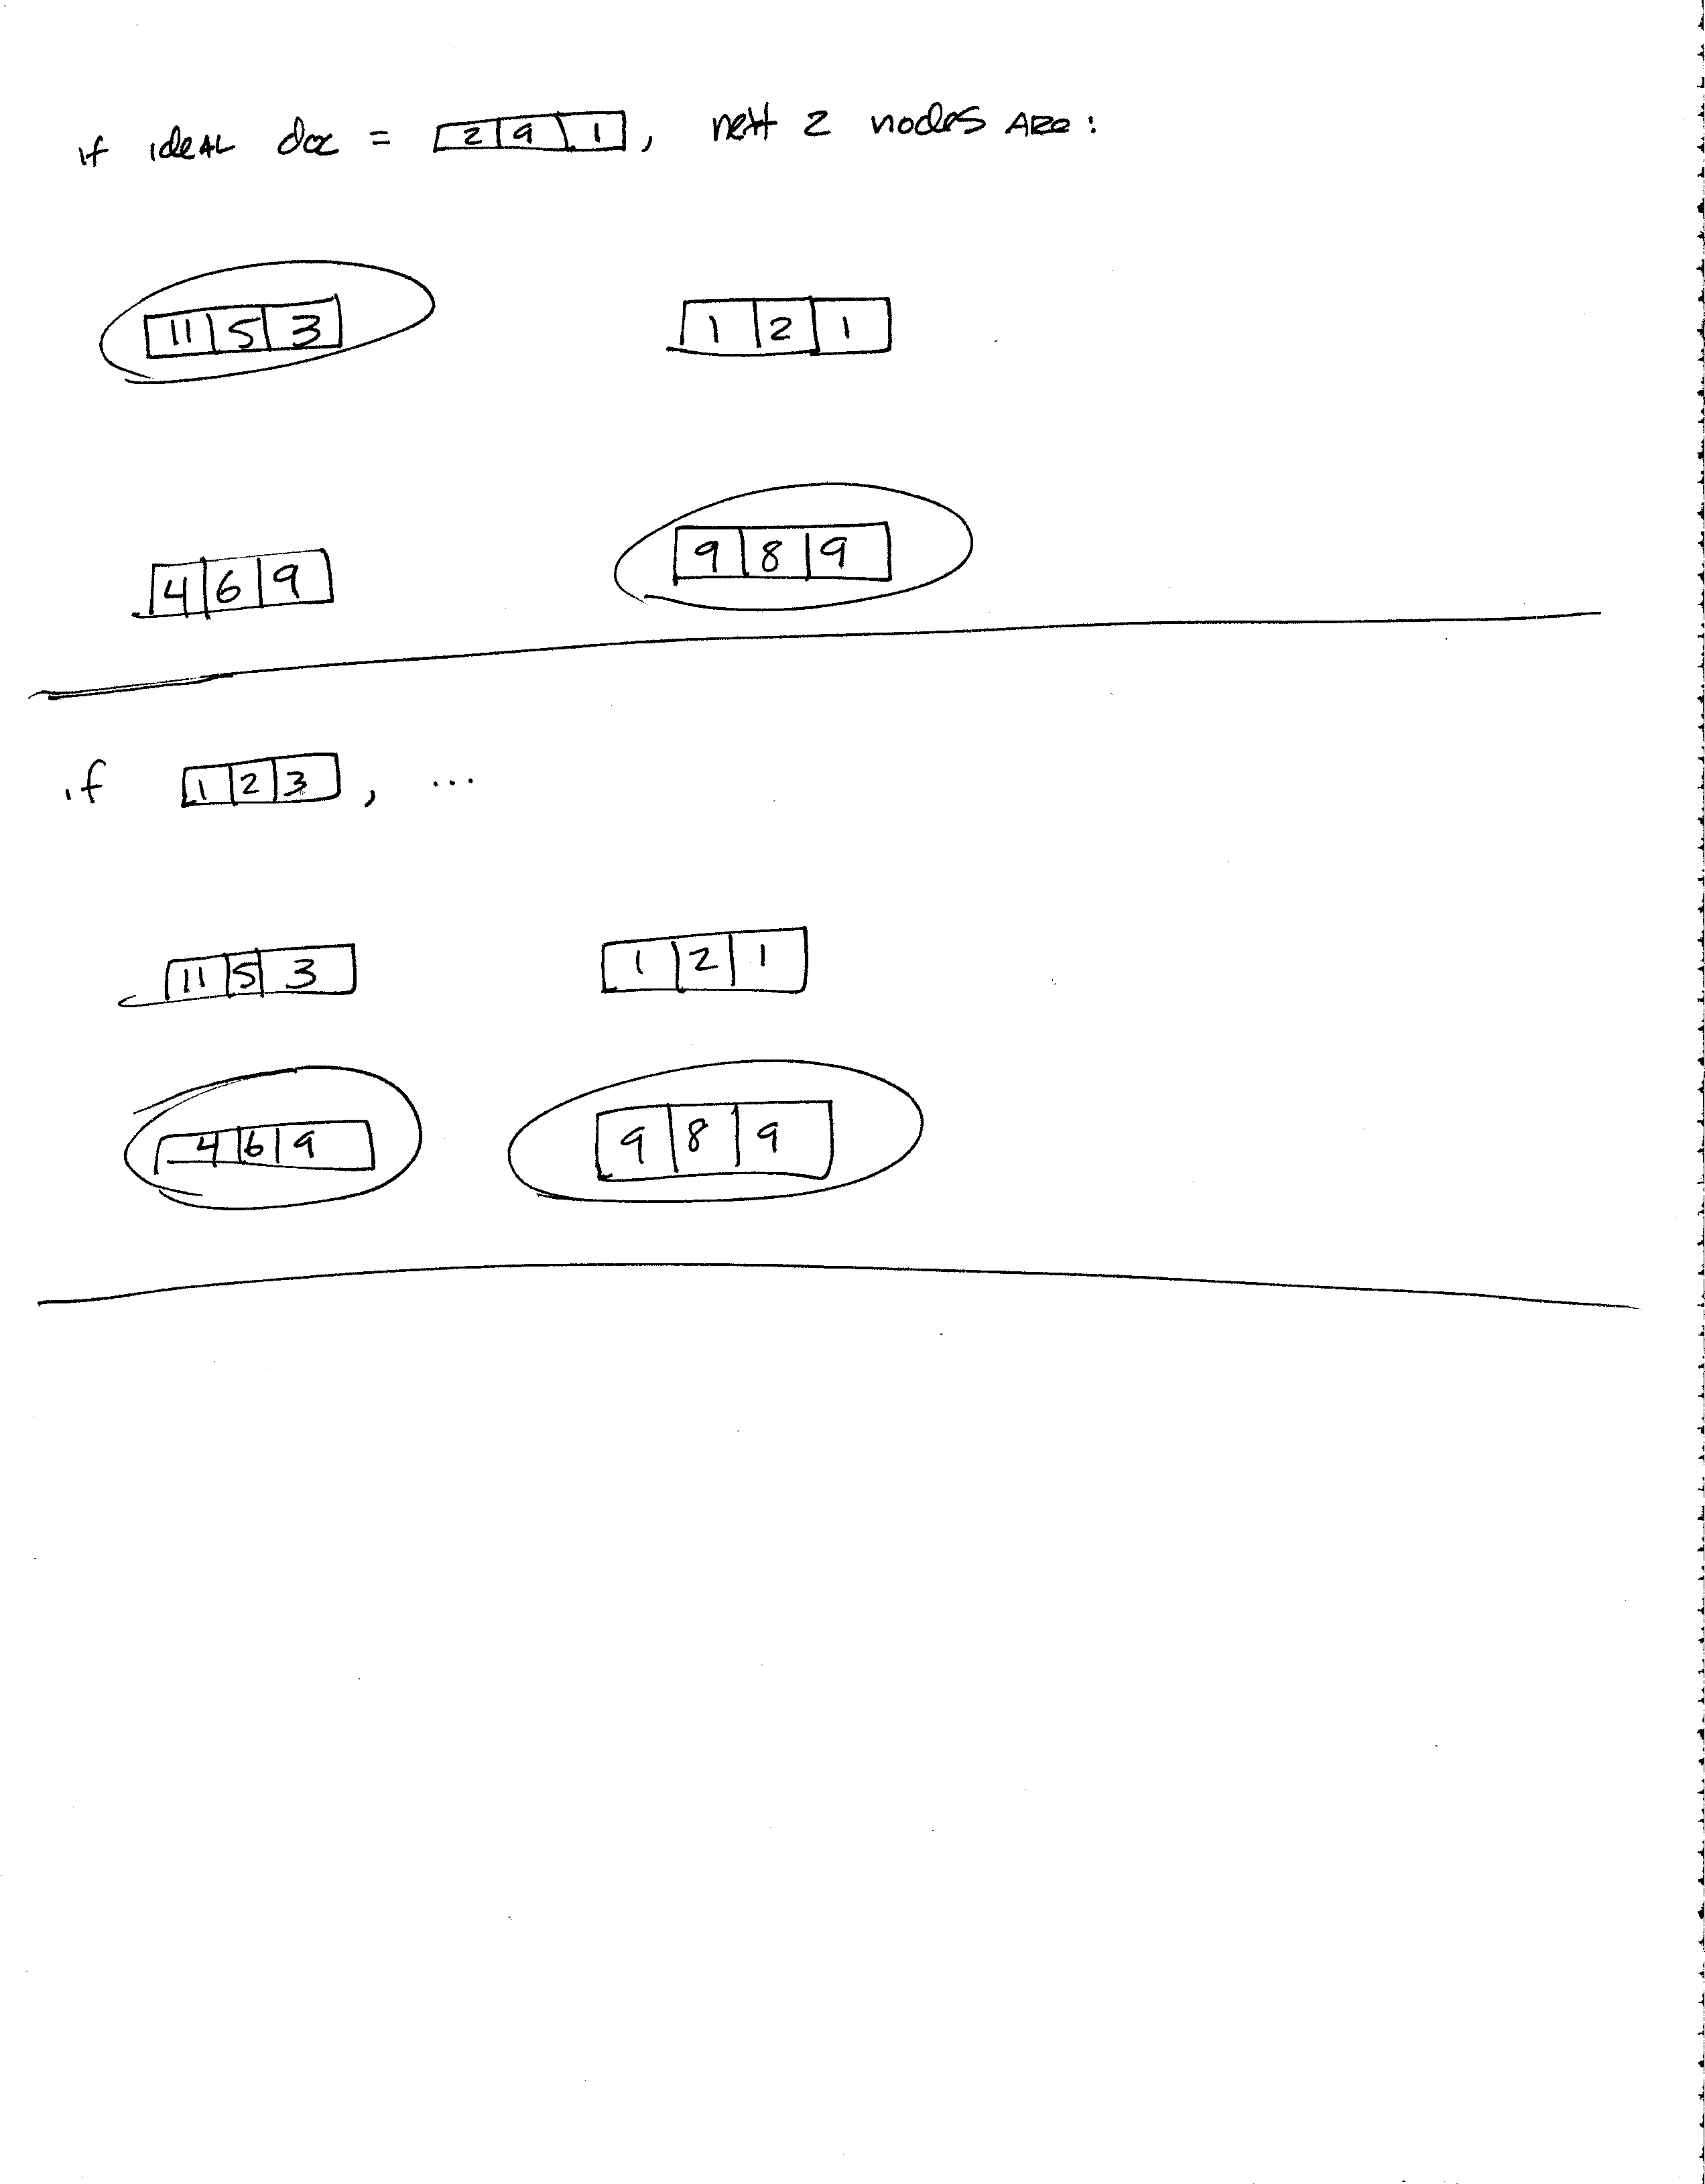 if ideal doc = 2 9 1, next 2 nodes are:
11 5 3 1 2 1
4 6 9 9 8 9
if 1 2 3, ...
11 5 3 1 2 1
4 6 9 9 8 9